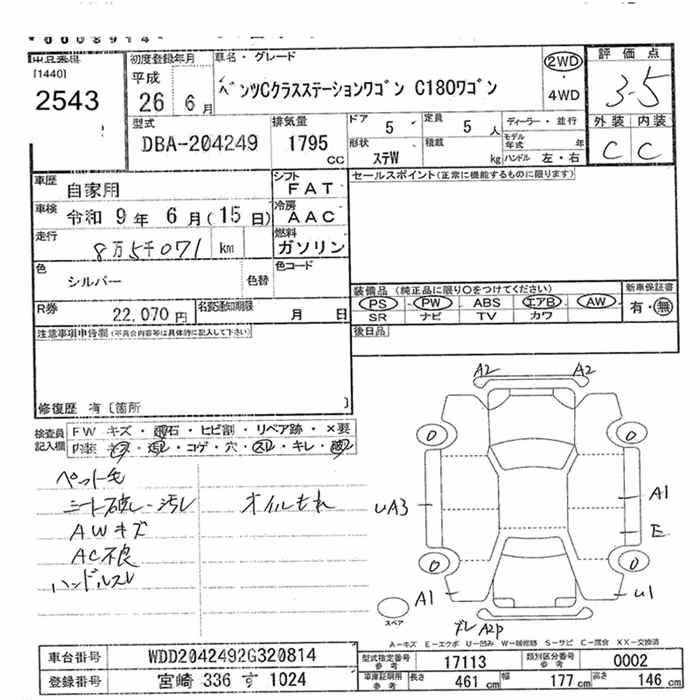 [1440]
2543
初度登録年月
平成
26 6月
車名・グレード
ベンツCクラスステーションワゴン C180ワゴン
2WD
・
4WD
評価点
3.5
外装 内装
C C
型式
DBA-204249
排気量
1795 cc
ドア 5
定員 5 人
形状 ステW
積載 kg
ディーラー・並行
モデル年式 年
ハンドル 左・右
車歴 自家用
シフト FAT
セールスポイント(正常に機能するものに限ります)
車検 令和 9年 6月(15日)
冷房 AAC
走行 8万5千071 km
燃料 ガソリン
色 シルバー 色替
色コード
装備品(純正品に限り○をつけてください)
PS ・ PW ・ ABS エアB ・ AW
SR ナビ TV カワ
新車保証書
有・無
R券 22,070円
名変通知期限 月 日
後日品
注意事項申告欄(不具合内容等は具体的に記入して下さい)
修復歴 有〔箇所 〕
検査員記入欄
FW キズ・飛石・ヒビ割・リペア跡・×要
内装 キズ・汚レ・コゲ・穴・スレ・キレ・破レ
ペット毛
シート破レ・汚レ オイルもれ
AWキズ
AC不良
ハンドルスレ
A2 A2
0 0
UA3
A1
E
0 0
A1
U1
スペア
ズレ A2P
A-キズ E-エクボ U-凹み W-補修跡 S-サビ C-腐食 XX-交換済
車台番号 WDD2042492G320814
型式指定番号 参考 17113
類別区分番号 参考 0002
登録番号 宮崎 336 す 1024
車庫証明用 参考
長さ 461 cm
幅 177 cm
高さ 146 cm